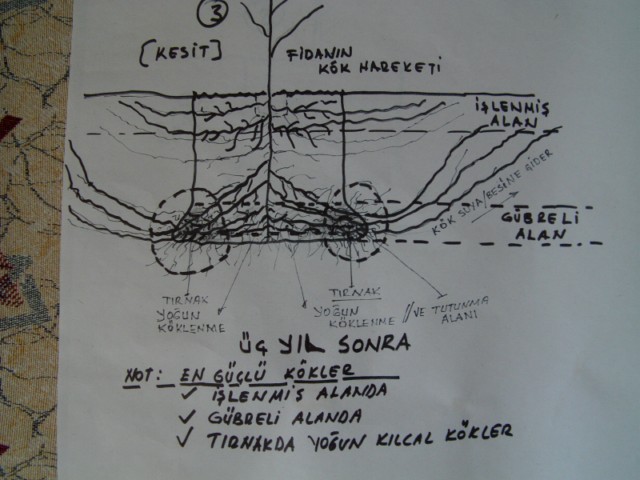 3
[KESİT]
FİDANIN
KÖK HAREKETİ
İŞLENMİŞ
ALAN
KÖK SUYA/BESİNE GİDER
GÜBRELİ
ALAN
TIRNAK
YOĞUN
KÖKLENME
TIRNAK
YOĞUN
KÖKLENME // VE TUTUNMA
ALANI
ÜÇ YIL SONRA
NOT: EN GÜÇLÜ KÖKLER
✓ İŞLENMİŞ ALANDA
✓ GÜBRELİ ALANDA
✓ TIRNAKDA YOĞUN KILCAL KÖKLER